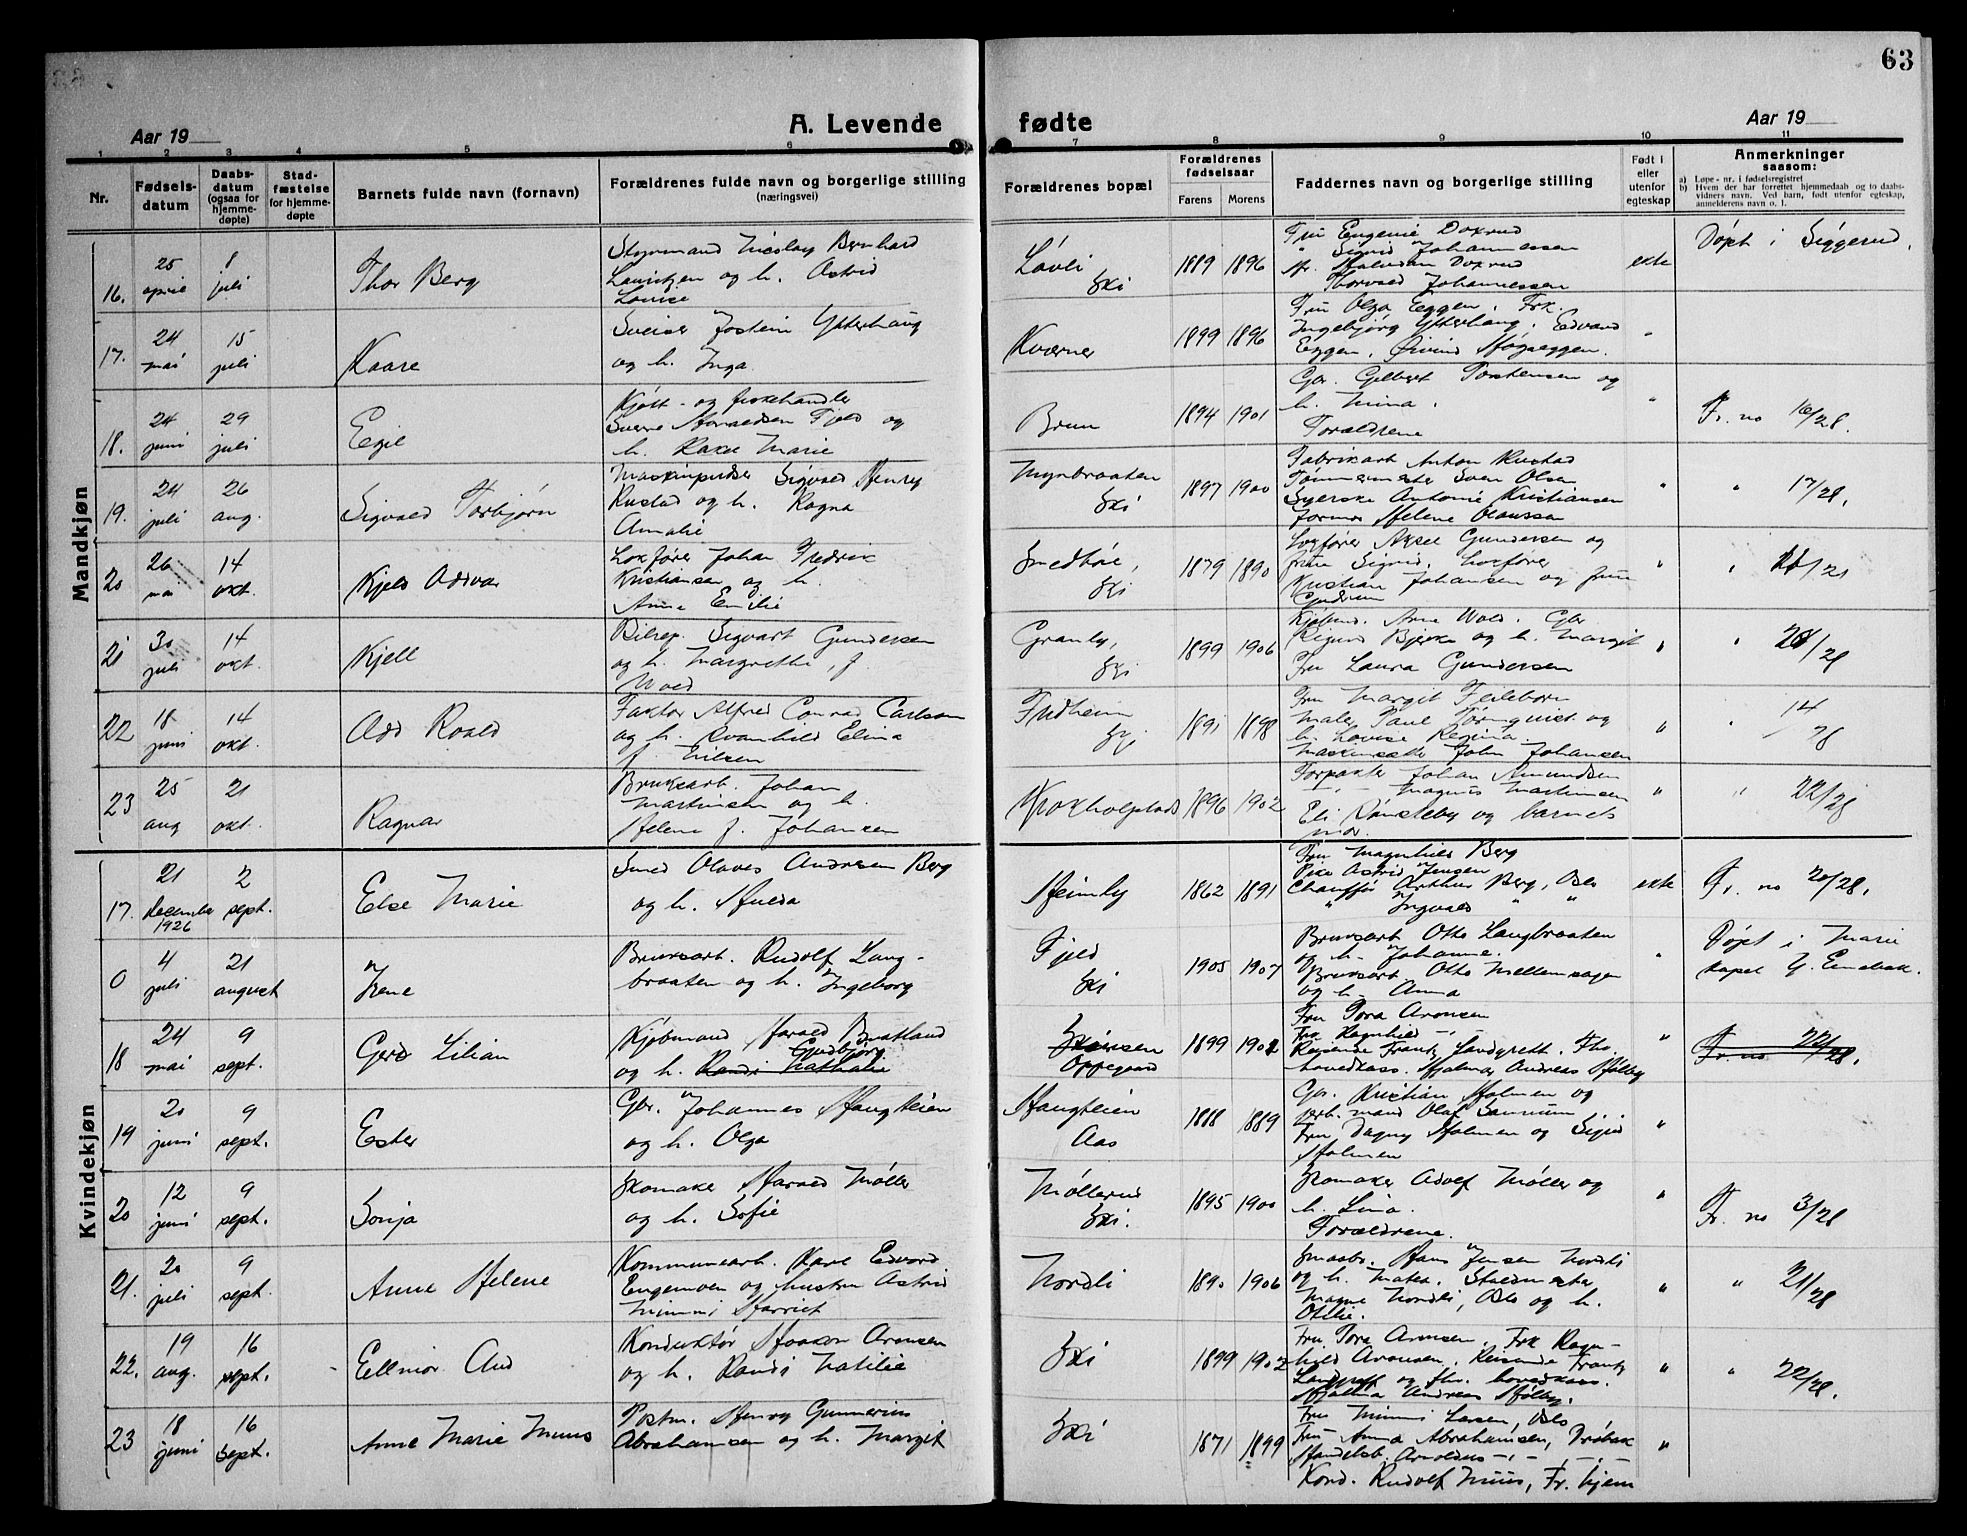 63
Aar 19
A. Levende
fødte
Aar 19
1 2 3 4 5 6 7 8 9 10 11
Nr.
Fødsels-
datum
Daabs-
datum
(ogsaa for
hjemme-
døpte)
Stad-
fæstelse
for hjemme-
døpte
Barnets fulde navn (fornavn)
Forældrenes fulde navn og borgerlige stilling
(næringsvei)
Forældrenes bopæl
Forældrenes
fødselsaar
Farens Morens
Faddernes navn og borgerlige stilling
Født i
eller
utenfor
egteskap
Anmerkninger
saasom:
a) Løpe-nr. i fødselsregistret
b) Hvem der har forrettet hjemmedaab og to daabs-
vidners navn. Ved barn, født utenfor egteskap,
anmelderens navn o. l.
Mandkjøn
16.
25
april
8
juli
Thor Berg
Styrmand Nicolay Bernhard
Lauritzen og h. Astrid
Louise
Løvli
Ski
1889 1896
Fru Eugenie Doxrud
" Sigrid Johannessen
Hr. Halvdan Doxrud
Thorvald Johannessen
ekte
Døpt i Siggerud.
17.
24
mai
15
juli
Kaare
Sveiser Jostein Ytterhaug
og h. Inga
Kværner
1899 1896
Fru Olga Eggen. Frk.
Ingebjørg Ytterhaug. Edvard
Eggen. Øivind Høgseggen.
"
18.
24
juni
29
juli
Egil
Kjøtt- og fiskehandler
Sverre Amundsen Fjeld og
h. Marie
Brun
1894 1901
Gbr. Gilbert Torstensen og
h. Mina.
Forældrene
"
Fr. no 16/28.
19.
24
juli
26
aug.
Sigvald Torbjørn
Maskinpudser Sigvald Henry
Rustad og h. Ragna
Amalie
Myrbraaten
Ski
1897 1900
Fabrikarb. Anton Rustad
Tømmermester Sven Olsen
Syerske Antonie Kristiansen
Helene Olaussen
"
" 17/28.
20
26
mai
14
okt.
Kjeld Oddvar
Lokfører Johan Fredrik
Kristiansen og h.
Anna Emilie
Smedhøi,
Ski
1879 1890
Lokfører Aksel Gundersen og
frue Sigrid. Lokfører
Kristian Johansen og frue
Gudrun
"
"
21
30
juli
14
okt.
Kjell
Bilrep. Sigvart Gundersen
og h. Margrethe, f.
Wold
Granly,
Ski
1899 1906
Kjøbmd. Arne Wold. Gbr.
Sigurd Bjerke og h. Margit
Fru Laura Gundersen
"
"
22
18
juni
14
okt.
Odd Roald
Faktor Alfred Conrad Carlson
og h. Svanhild Elina
f. Nilsen
Fredheim
Ski
1891 1898
Fru Margit Feileborn
Maler Paul Törnquist og
h. Lovise Regina.
Maskinsetter John Johansen
"
" 14/28
23
25
aug
21
okt.
Ragnar
Bruksarb. Johan
Martinsen og h.
Helene f. Johansen
Krokholplads
1896 1902
Forpakter Johan Amundsen
Magnus Martinsen
Eli Rønsleby og barnets
mor.
"
" 22/28
Kvindekjøn
17.
21
december
1926
2
sept.
Else Marie
Smed Olaves Andresen Berg
og h. Hulda
Heimly
1862 1891
Fru Magnhild Berg
Pike Astrid Jensen
Chauffør Arthur Berg, Oslo
" Ingvald " "
ekte
Fr. no 20/28.
0
4
juli
21
august
Irene
Bruksarb. Rudolf Lang-
braaten og h. Ingeborg
Fjeld
Ski
1905 1907
Bruksarb. Otto Langbraaten
og h. Johanne.
Bruksarb. Otto Mellemsagen
og h. Anna
"
Døpt i Marie
kapel Y. Enebak.
18
24
mai
9
sept.
Gerd Lilian
Kjøbmand Harald Bratland
Gudbjørg
og h. Randi Nathalie
Oppegaard
1899 1902
Fru Tora Aronsen
Frk Ragnhild -"-
Reisende Frantz Landgrett. Fhv.
hovedkass. Hjalmar Andreas Hølby
"
Fr. no 22/28.
19
20
juni
9
sept.
Ester
Gbr. Johannes Haugteien
og h. Olga
Haugteien
Aas
1888 1889
Gbr. Kristian Holmen og
verb. mand Olaf Sannum
Fru Dagny Holmen og Sigrid
Holmen
"
20
12
juni
9
sept.
Sonja
Skomaker Harald Møller
og h. Sofie
Møllerud
Ski.
1895 1900
Skomaker Adolf Møller og
h. Lina.
Forældrene.
"
Fr. no 3/28
21.
20
juli
9
sept.
Anne Helene
Kommunearb. Kare Edvard
Engemoen og hustru Astrid
Mimmi Harriet
Nordli
1890 1906
Smaabr. Hans Jensen Nordli
og h. Mathea. Staldmester
Magne Nordli, Oslo og h.
Otilie.
"
" 21/28
22.
19
aug.
16
sept.
Ellinor Aud
Konduktør Haakon Aronsen
og h. Randi Natilie
Ski
1899 1902
Fru Tora Aronsen. Frk Ragn-
hild Aronsen. Reisende Frantz
Landgrett og fhv. hovedkass.
Hjalmar Andreas Hølby.
"
" 22/28.
23
18
juni
16
sept.
Anne Marie Muus
Postm. Henry Gunnerius
Abrahamsen og h. Margit
Ski
1871 1899
Fru Mimmi Larsen, Oslo
Fru Anna Abrahamsen, Drøbak
Handelsb. Arnoldus -"- -"-
Kond. Rudolf Muus, Fr. hjem
"